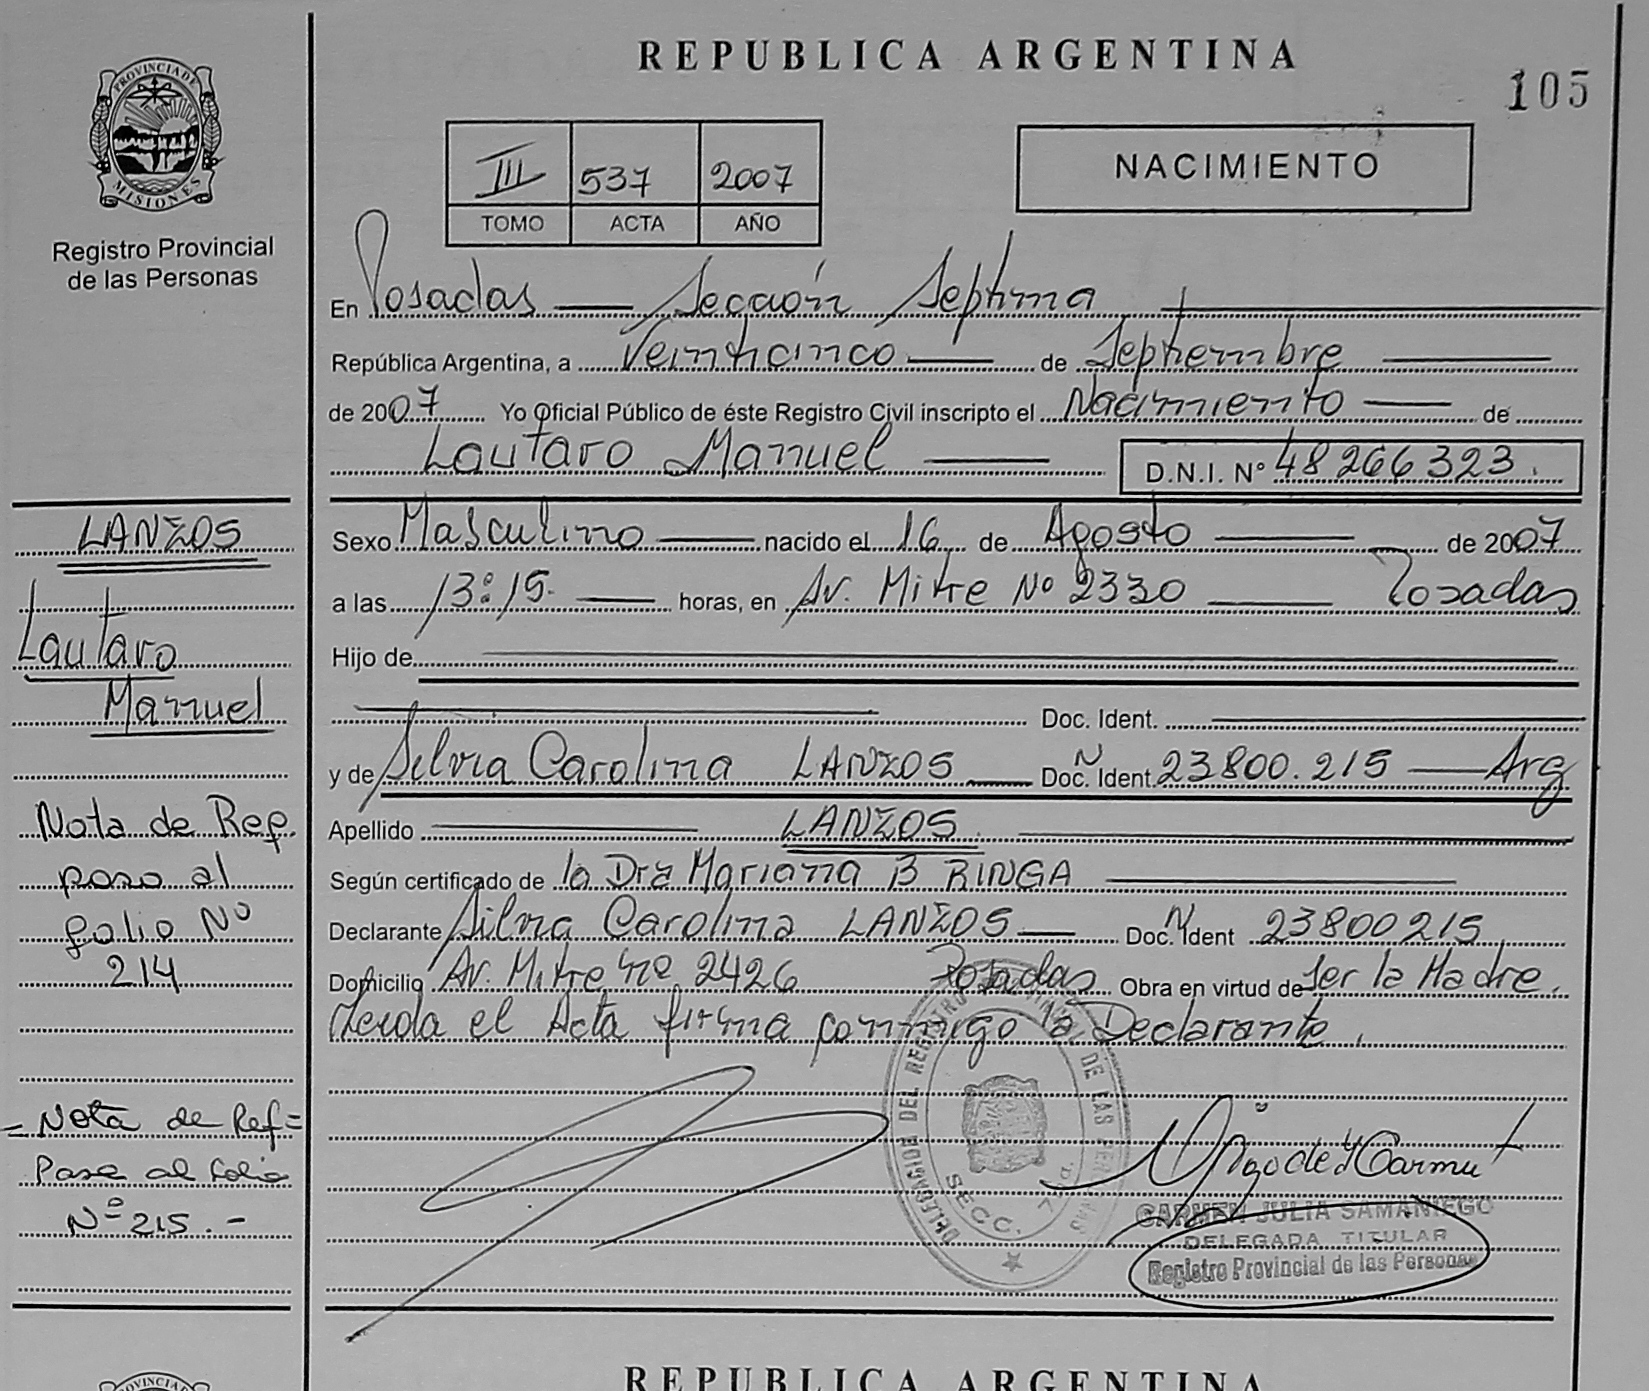 REPUBLICA ARGENTINA
105
PROVINCIA DE
MISIONES
Registro Provincial
de las Personas
III 537 2007
TOMO ACTA AÑO
NACIMIENTO
En Posadas — Sección Septima
República Argentina, a Veinticinco de Septiembre
de 2007 Yo Oficial Público de éste Registro Civil inscripto el Nacimiento de
Lautaro Manuel D.N.I. Nº 48266323.
Sexo Masculino nacido el 16 de Agosto de 2007
a las 13:15. horas, en Av. Mitre Nº 2330 Posadas
Hijo de
Doc. Ident.
y de Silvia Carolina LANZOS Doc. Ident. N 23800.215 — Arg
Apellido LANZOS
Según certificado de la Dra Mariana B RINGA
Declarante Silvia Carolina LANZOS Doc. Ident N 23800215
Domicilio Av. Mitre nº 2426 Posadas Obra en virtud de Ser la Madre.
Leida el Acta firma conmigo la Declarante.
LANZOS
Lautaro
Manuel
Nota de Ref.
paso al
folio Nº
214
- Nota de Ref =
Pase al folio
Nº 215.-
DELEGACION DEL REGISTRO PROVINCIAL DE LAS PERSONAS
SECC. 7
CARMEN JULIA SAMANIEGO
DELEGADA TITULAR
Registro Provincial de las Personas
PROVINCIA
REPUBLICA ARGENTINA